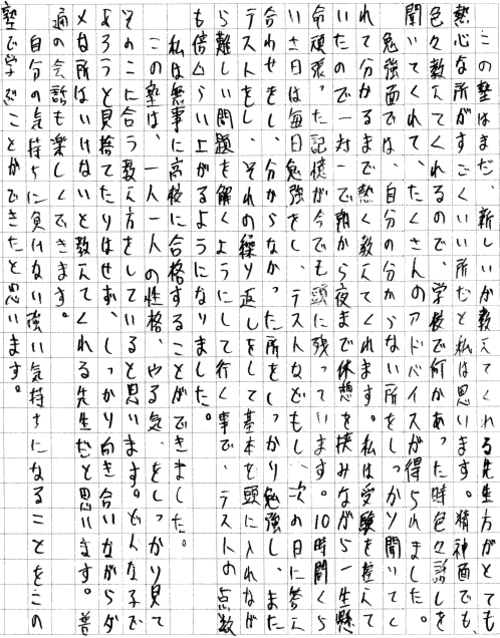 この塾はまだ、新しいが教えてくれる先生方がとても
熱心な所がすごくいい所だと私は思います。精神面でも、
色々教えてくれるので、学校で何かあった時色々話しを
聞いてくれて、たくさんのアドバイスが得られました。
勉強面では、自分の分からない所をしっかり聞いてく
れて分かるまで熱く教えてくれます。私は受験を控えて
いたので一対一で朝から夜まで休憩を挟みながら一生懸
命頑張った記憶が今でも頭に残っています。10時間くら
いさ日は毎日勉強をし、テストなどもし、次の日に答え
合わせをし、分からなかった所をしっかり勉強し、また
テストをし、それの繰り返しをして基本を頭に入れなが
ら難しい問題を解くようにして行く事で、テストの点数
も倍くらい上がるようになりました。
私は無事に高校に合格することができました。
この塾は、一人一人の性格、やる気、をしっかり見て
そのこに合う教え方をしていると思います。どんな子で
あろうと見捨てたりはせず、しっかり向き合いながらダ
メな所はいけないと教えてくれる先生だと思います。普
通の会話も楽しくできます。
自分の気持ちに負けない強い気持ちになることをこの
塾で学ぶことができたと思います。